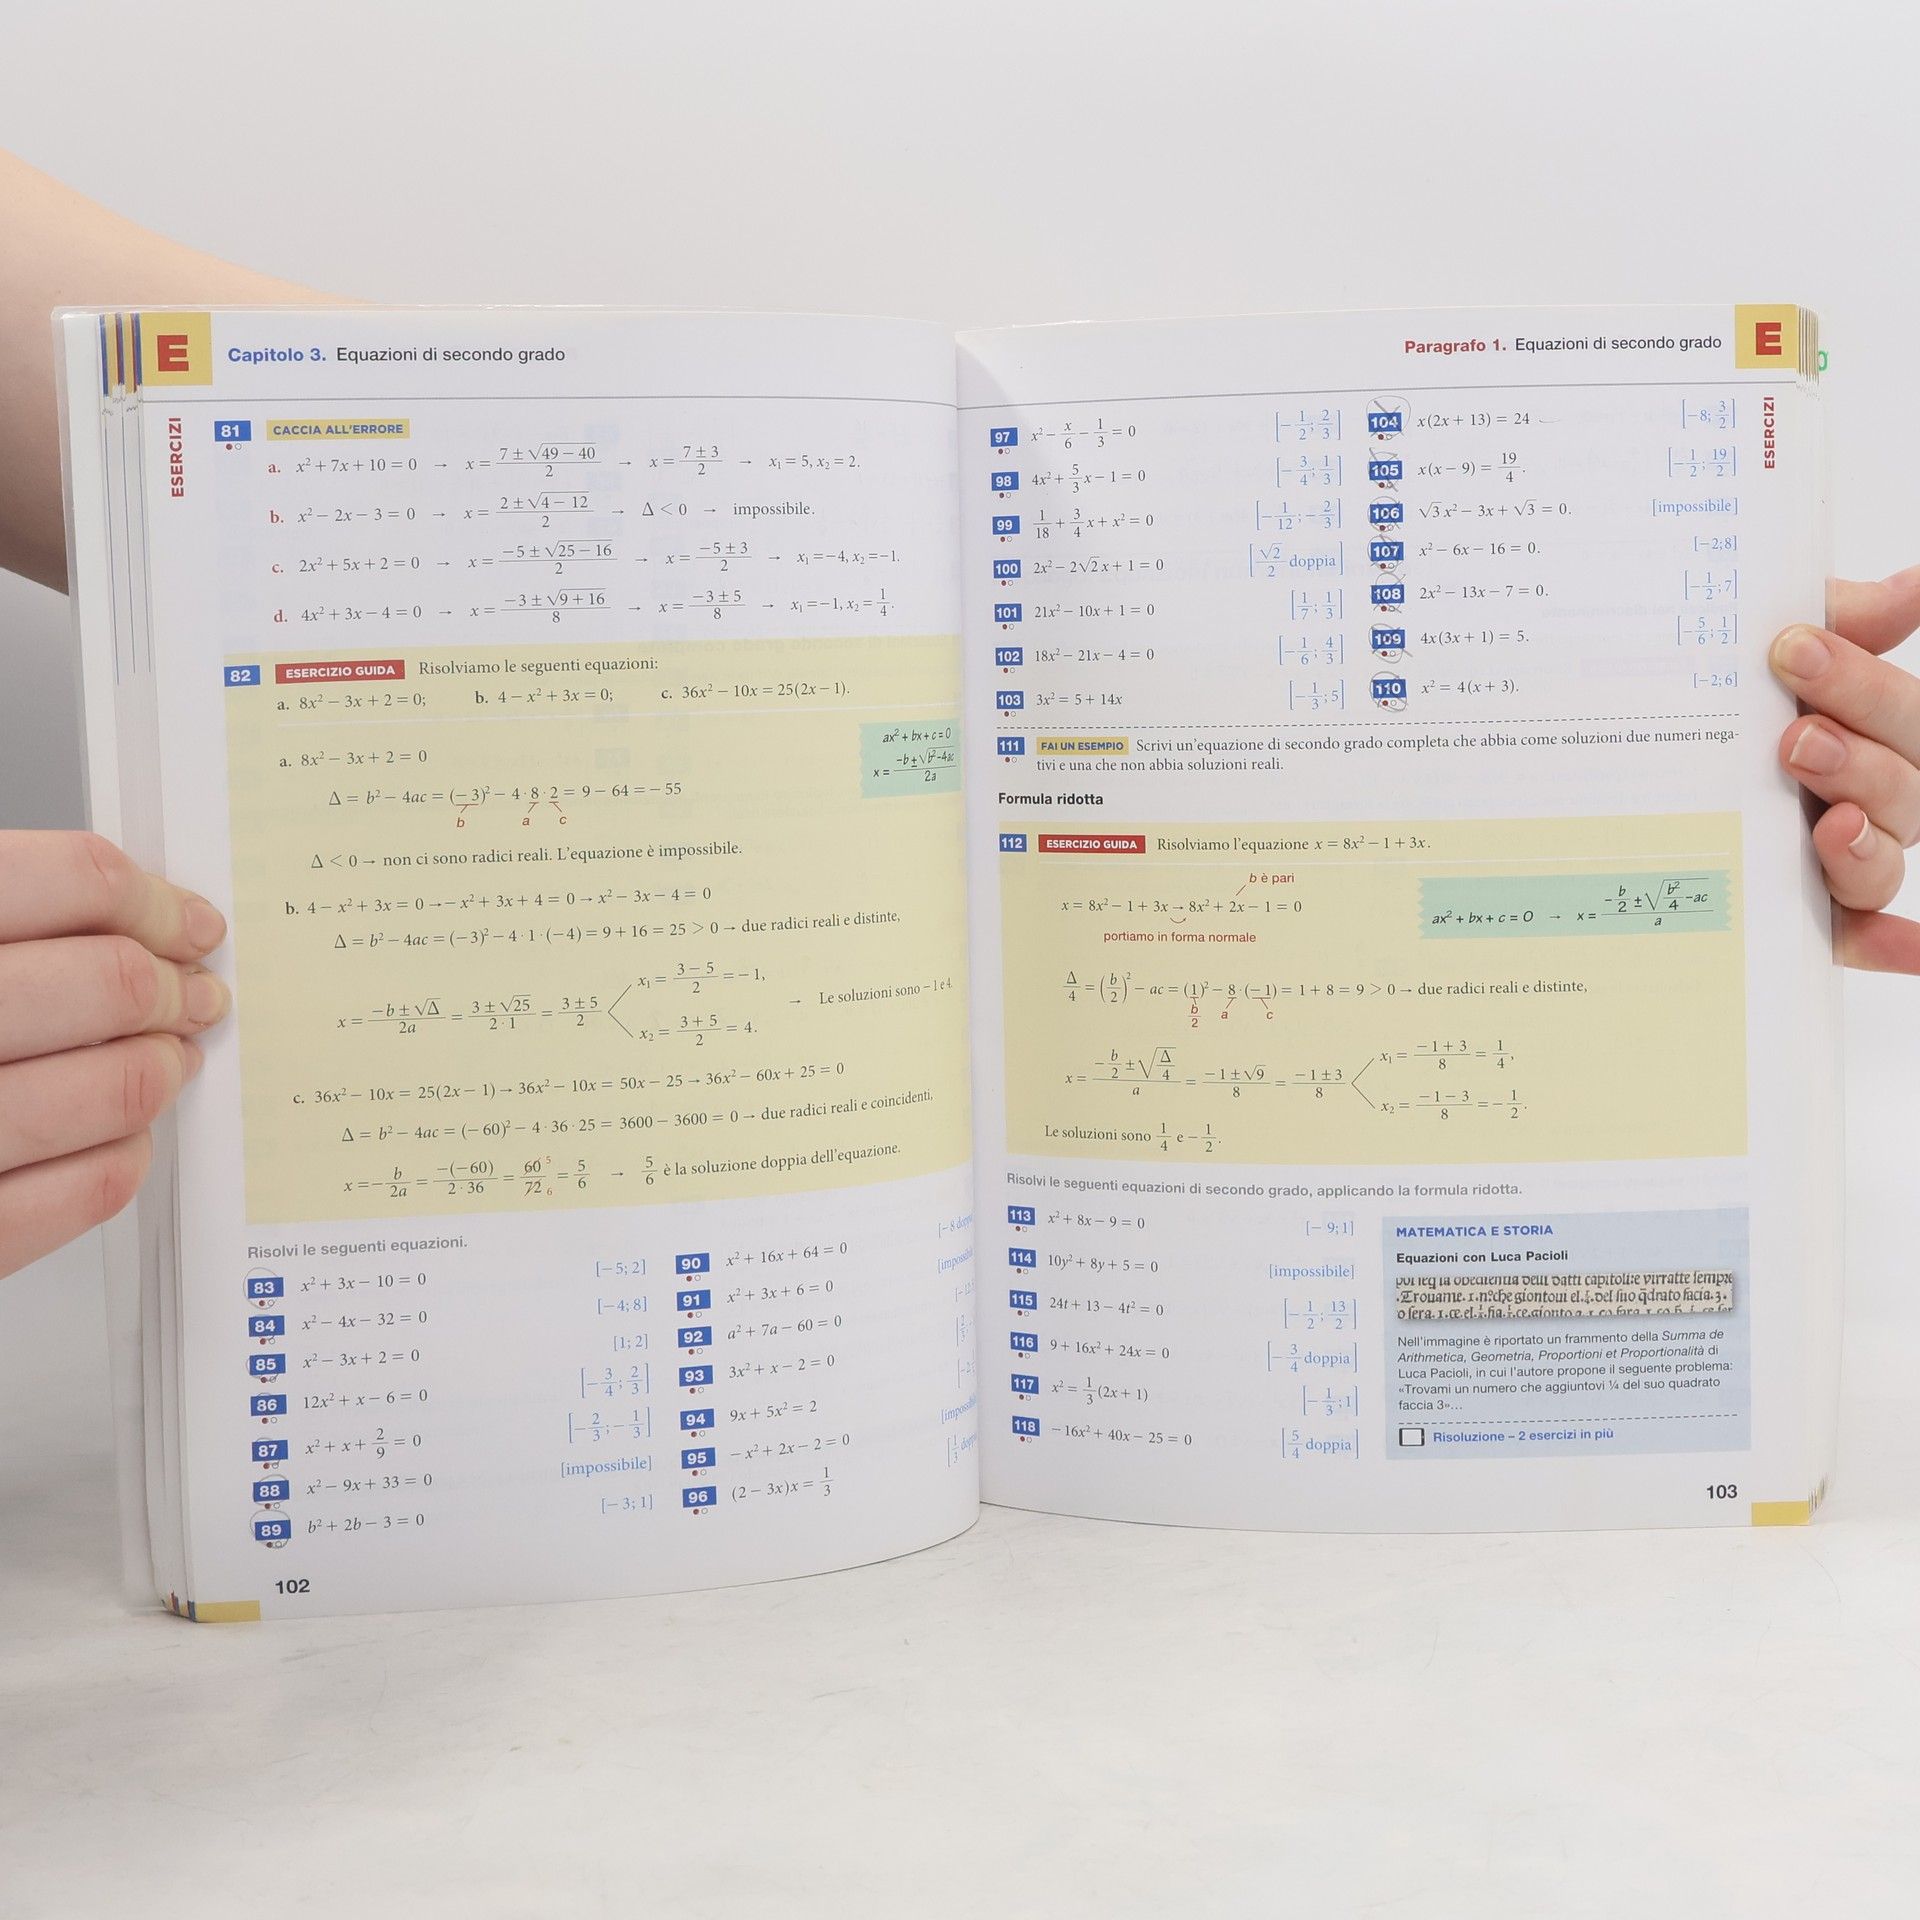 E
Capitolo 3. Equazioni di secondo grado
ESERCIZI
81 CACCIA ALL'ERRORE
a. x² + 7x + 10 = 0 → x = (7 ± √(49 − 40))/2 → x = (7 ± 3)/2 → x₁ = 5, x₂ = 2.
b. x² − 2x − 3 = 0 → x = (2 ± √(4 − 12))/2 → Δ < 0 → impossibile.
c. 2x² + 5x + 2 = 0 → x = (−5 ± √(25 − 16))/2 → x = (−5 ± 3)/2 → x₁ = −4, x₂ = −1.
d. 4x² + 3x − 4 = 0 → x = (−3 ± √(9 + 16))/8 → x = (−3 ± 5)/8 → x₁ = −1, x₂ = 1/4.
82 ESERCIZIO GUIDA Risolviamo le seguenti equazioni:
a. 8x² − 3x + 2 = 0; b. 4 − x² + 3x = 0; c. 36x² − 10x = 25(2x − 1).
ax² + bx + c = 0
x = (−b ± √(b² − 4ac))/2a
a. 8x² − 3x + 2 = 0
Δ = b² − 4ac = (−3)² − 4 · 8 · 2 = 9 − 64 = −55
b a c
Δ < 0 → non ci sono radici reali. L'equazione è impossibile.
b. 4 − x² + 3x = 0 → −x² + 3x + 4 = 0 → x² − 3x − 4 = 0
Δ = b² − 4ac = (−3)² − 4 · 1 · (−4) = 9 + 16 = 25 > 0 → due radici reali e distinte,
x = (−b ± √Δ)/2a = (3 ± √25)/(2 · 1) = (3 ± 5)/2
x₁ = (3 − 5)/2 = −1,
x₂ = (3 + 5)/2 = 4.
→ Le soluzioni sono −1 e 4.
c. 36x² − 10x = 25(2x − 1) → 36x² − 10x = 50x − 25 → 36x² − 60x + 25 = 0
Δ = b² − 4ac = (−60)² − 4 · 36 · 25 = 3600 − 3600 = 0 → due radici reali e coincidenti,
x = −b/2a = −(−60)/(2 · 36) = 60 5/72 6 = 5/6 → 5/6 è la soluzione doppia dell'equazione.
Risolvi le seguenti equazioni.
83 x² + 3x − 10 = 0 [−5; 2]
84 x² − 4x − 32 = 0 [−4; 8]
85 x² − 3x + 2 = 0 [1; 2]
86 12x² + x − 6 = 0 [−3/4; 2/3]
87 x² + x + 2/9 = 0 [−2/3; −1/3]
88 x² − 9x + 33 = 0 [impossibile]
89 b² + 2b − 3 = 0 [−3; 1]
90 x² + 16x + 64 = 0 [−8
91 x² + 3x + 6 = 0
92 a² + 7a − 60 = 0
93 3x² + x − 2 = 0
94 9x + 5x² = 2
95 −x² + 2x − 2 = 0
96 (2 − 3x)x = 1/3
102
Paragrafo 1. Equazioni di secondo grado
E
ESERCIZI
97 x² − x/6 − 1/3 = 0 [−1/2; 2/3]
98 4x² + 5/3 x − 1 = 0 [−3/4; 1/3]
99 1/18 + 3/4 x + x² = 0 [−1/12; −2/3]
100 2x² − 2√2 x + 1 = 0 [√2/2 doppia]
101 21x² − 10x + 1 = 0 [1/7; 1/3]
102 18x² − 21x − 4 = 0 [−1/6; 4/3]
103 3x² = 5 + 14x [−1/3; 5]
104 x(2x + 13) = 24 [−8; 3/2]
105 x(x − 9) = 19/4. [−1/2; 19/2]
106 √3 x² − 3x + √3 = 0. [impossibile]
107 x² − 6x − 16 = 0. [−2; 8]
108 2x² − 13x − 7 = 0. [−1/2; 7]
109 4x(3x + 1) = 5. [−5/6; 1/2]
110 x² = 4(x + 3). [−2; 6]
111 FAI UN ESEMPIO Scrivi un'equazione di secondo grado completa che abbia come soluzioni due numeri nega-
tivi e una che non abbia soluzioni reali.
Formula ridotta
112 ESERCIZIO GUIDA Risolviamo l'equazione x = 8x² − 1 + 3x.
b è pari
x = 8x² − 1 + 3x → 8x² + 2x − 1 = 0
portiamo in forma normale
ax² + bx + c = 0 → x = (−b/2 ± √(b²/4 − ac))/a
Δ/4 = (b/2)² − ac = (1)² − 8 · (−1) = 1 + 8 = 9 > 0 → due radici reali e distinte,
b/2 a c
x = (−b/2 ± √(Δ/4))/a = (−1 ± √9)/8 = (−1 ± 3)/8
x₁ = (−1 + 3)/8 = 1/4,
x₂ = (−1 − 3)/8 = −1/2.
Le soluzioni sono 1/4 e −1/2.
Risolvi le seguenti equazioni di secondo grado, applicando la formula ridotta.
113 x² + 8x − 9 = 0 [−9; 1]
114 10y² + 8y + 5 = 0 [impossibile]
115 24t + 13 − 4t² = 0 [−1/2; 13/2]
116 9 + 16x² + 24x = 0 [−3/4 doppia]
117 x² = 1/3(2x + 1) [−1/3; 1]
118 −16x² + 40x − 25 = 0 [5/4 doppia]
MATEMATICA E STORIA
Equazioni con Luca Pacioli
Nell'immagine è riportato un frammento della Summa de
Arithmetica, Geometria, Proportioni et Proportionalità di
Luca Pacioli, in cui l'autore propone il seguente problema:
«Trovami un numero che aggiuntovi ¼ del suo quadrato
faccia 3»...
Risoluzione – 2 esercizi in più
103